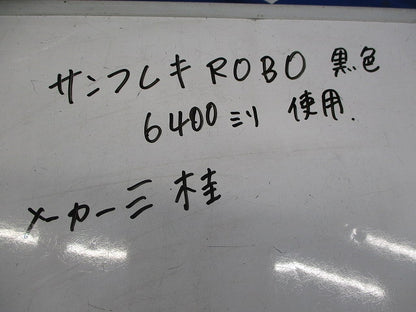 サンフレキ ROBO 黒色
6400ミリ 使用.
メーカー三桂